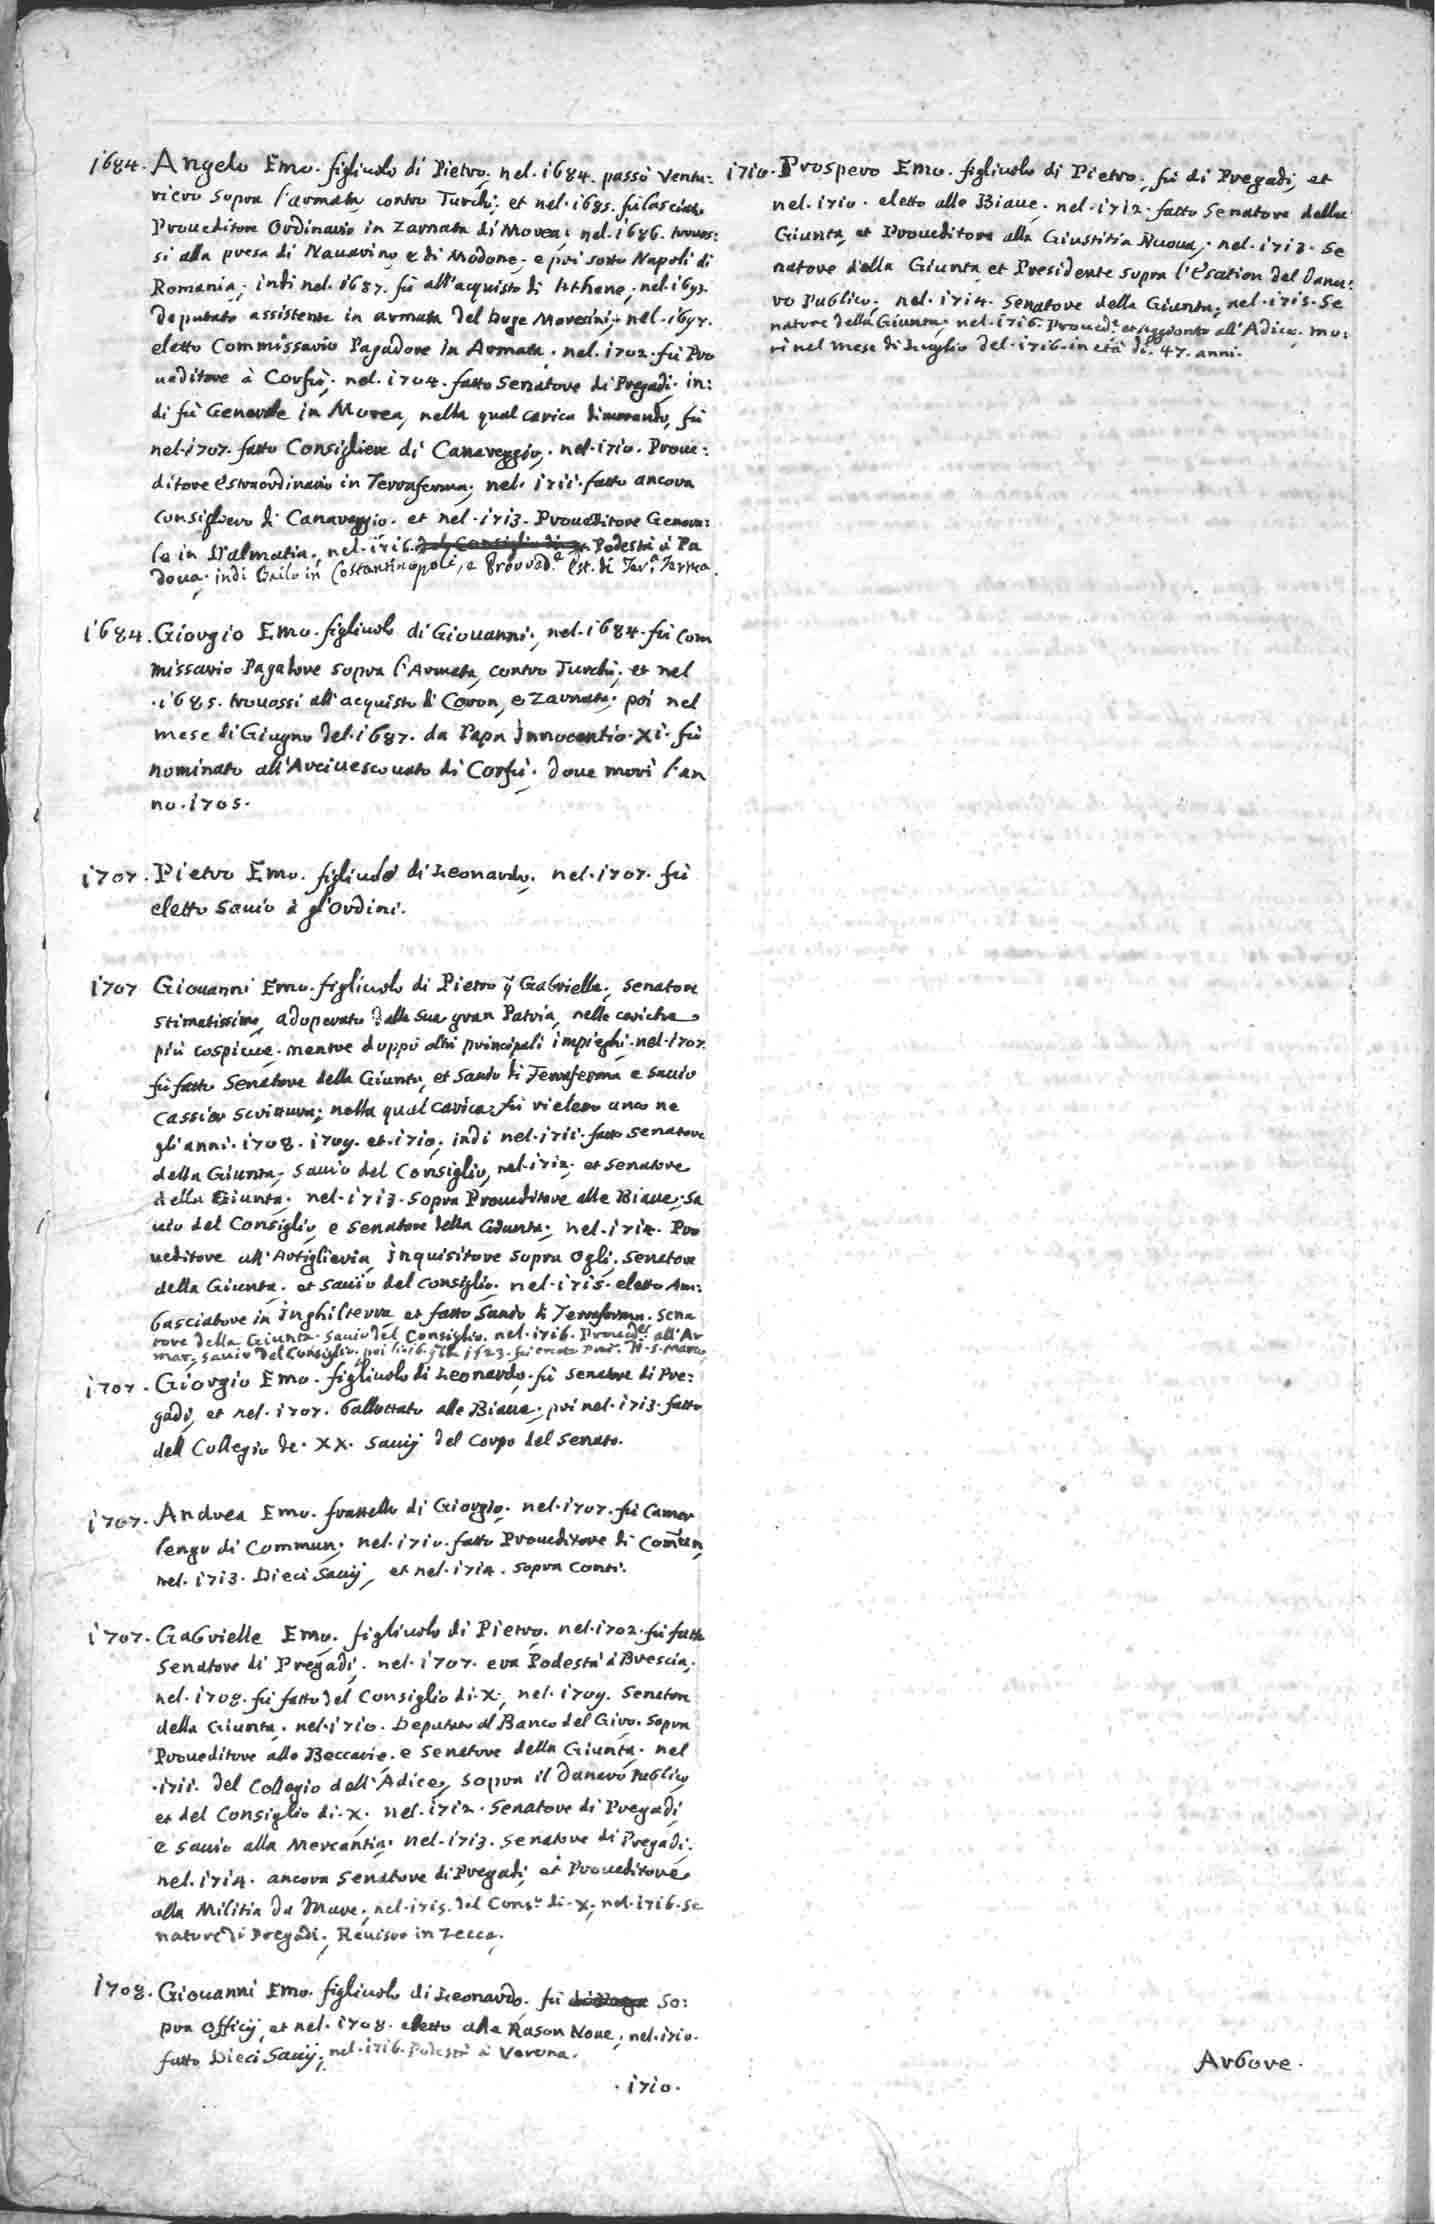 1684. Angelo Emo. figliuolo di Pietro. nel. 1684. passò ventu:
riero sopra l'armata contro Turchi; et nel. 1685. fù lasciato
Proueditore Ordinario in Zarnata di Morea; nel. 1686. trouos:
si alla presa di Nauarino, e di Modone; e poi sotto Napoli di
Romania; indi nel. 1687. fù all'acquisto di Athene; nel. 1693.
deputato assistente in armata del Doge Moresini; nel. 1697.
eletto Commissario Pagadore in Armata. nel. 1702. fù Pro
ueditore à Corfù; nel. 1704. fatto Senatore di Pregadi; in:
di fù Generale in Morea, nella qual carica dimorando, fù
nel. 1707. fatto Consigliere di Canareggio; nel. 1710. Proue:
ditore Estraordinario in Terraferma; nel. 1711. fatto ancora
Consigliero di Canareggio. et nel. 1713. Proueditore Genera:
le in Dalmatia; nel. 1716. Podestà à Pa
doua; indi Bailo in Costantinopoli, e Prouved.e Est. di Ter.a Ferma.
1684. Giorgio Emo. figliuolo di Giouanni; nel. 1684. fù Com
missario Pagatore sopra l'Armata, contro Turchi; et nel
.1685. trouossi all'acquisto di Coron, e Zarnata; poi nel
mese di Giugno del. 1687. da Papa Innocentio. XI. fù
nominato all'Arciuescouato di Corfù; doue morì l'an
no. 1705.
1707. Pietro Emo. figliuolo di Leonardo; nel. 1707. fù
eletto Sauio à gl'Ordini.
1707 Giouanni Emo. figliuolo di Pietro q Gabrielle; Senatore
stimatissimo, adoperato dalla sua gran Patria, nelle cariche
più cospicue; mentre doppò altri principali impieghi. nel. 1707.
fù fatto Senatore della Giunta, et Sauio di Terraferma e Sauio
Cassier Scrittura; nella qual carica fù rieletto anco ne
gli anni. 1708. 1709. et. 1710; indi nel. 1711. fatto Senatore
della Giunta; Sauio del Consiglio, nel. 1712; et Senatore
della Giunta; nel. 1713. sopra Proueditore alle Biaue; Sa
uio del Consiglio, e Senatore della Giunta; nel. 1714. Pro
ueditore all'Artiglieria, Inquisitore sopra Ogli; Senatore
della Giunta; et Sauio del Consiglio; nel. 1715. eletto Am:
basciatore in Inghilterra et fatto Sauio di Terraferma. Sena
tore della Giunta. Sauio del Consiglio. nel. 1716. Proued.r all'Ar
mar; Sauio del Consiglio; poi 1723. fù creato Proc. S. Marco.
1707. Giorgio Emo. figliuolo di Leonardo; fù Senatore di Pre:
gadi, et nel. 1707. ballottato alle Biaue; poi nel. 1713. fatto
dell Collegio de. XX. Sauij del Corpo del Senato.
1707. Andrea Emo. frattello di Giorgio; nel. 1707. fù Camer
lengo di Commun; nel. 1710. fatto Proueditore di Comun,
nel. 1713. Dieci Sauij, et nel. 1714. sopra Conti.
1707. Gabrielle Emo. figliuolo di Pietro. nel. 1702. fù fatto
Senatore di Pregadi; nel. 1707. era Podestà à Brescia;
nel. 1708. fù fatto del Consiglio di. X; nel. 1709. Senatore
della Giunta; nel. 1710. Deputato al Banco del Giro. sopra
Proueditore alle Beccarie; e Senatore della Giunta; nel
.1711. del Collegio dell'Adice, sopra il Danaro Publico,
et del Consiglio di. X. nel. 1712. Senatore di Pregadi,
e Sauio alla Mercantia; nel. 1713. Senatore di Pregadi;
nel. 1714. ancora Senatore di Pregadi, et Proueditore
alla Militia da Mare; nel. 1715. del Cons.o di. X; nel. 1716. Se
natore di Pregadi; Reuisor in Zecca.
1708. Giouanni Emo. figliuolo di Leonardo. fù So:
pra Officij, et nel. 1708. eletto alle Rason Noue; nel. 1710.
fatto Dieci Sauij; nel. 1716. Podestà à Verona.
.1710.
1710. Prospero Emo. figliuolo di Pietro; fù di Pregadi, et
nel. 1710. eletto alle Biaue; nel. 1712. fatto Senatore della
Giunta, et Proueditore alla Giustitia Nuoua; nel. 1713. Se
natore della Giunta, et Presidente sopra l'Esation del Dana:
ro Publico; nel. 1714. Senatore della Giunta; nel. 1715. Se
natore della Giunta; nel. 1716. Proued.r et aggionto all'Adice; mo:
rì nel mese di Luglio del. 1716. in età di. 47. anni.
Arbore.